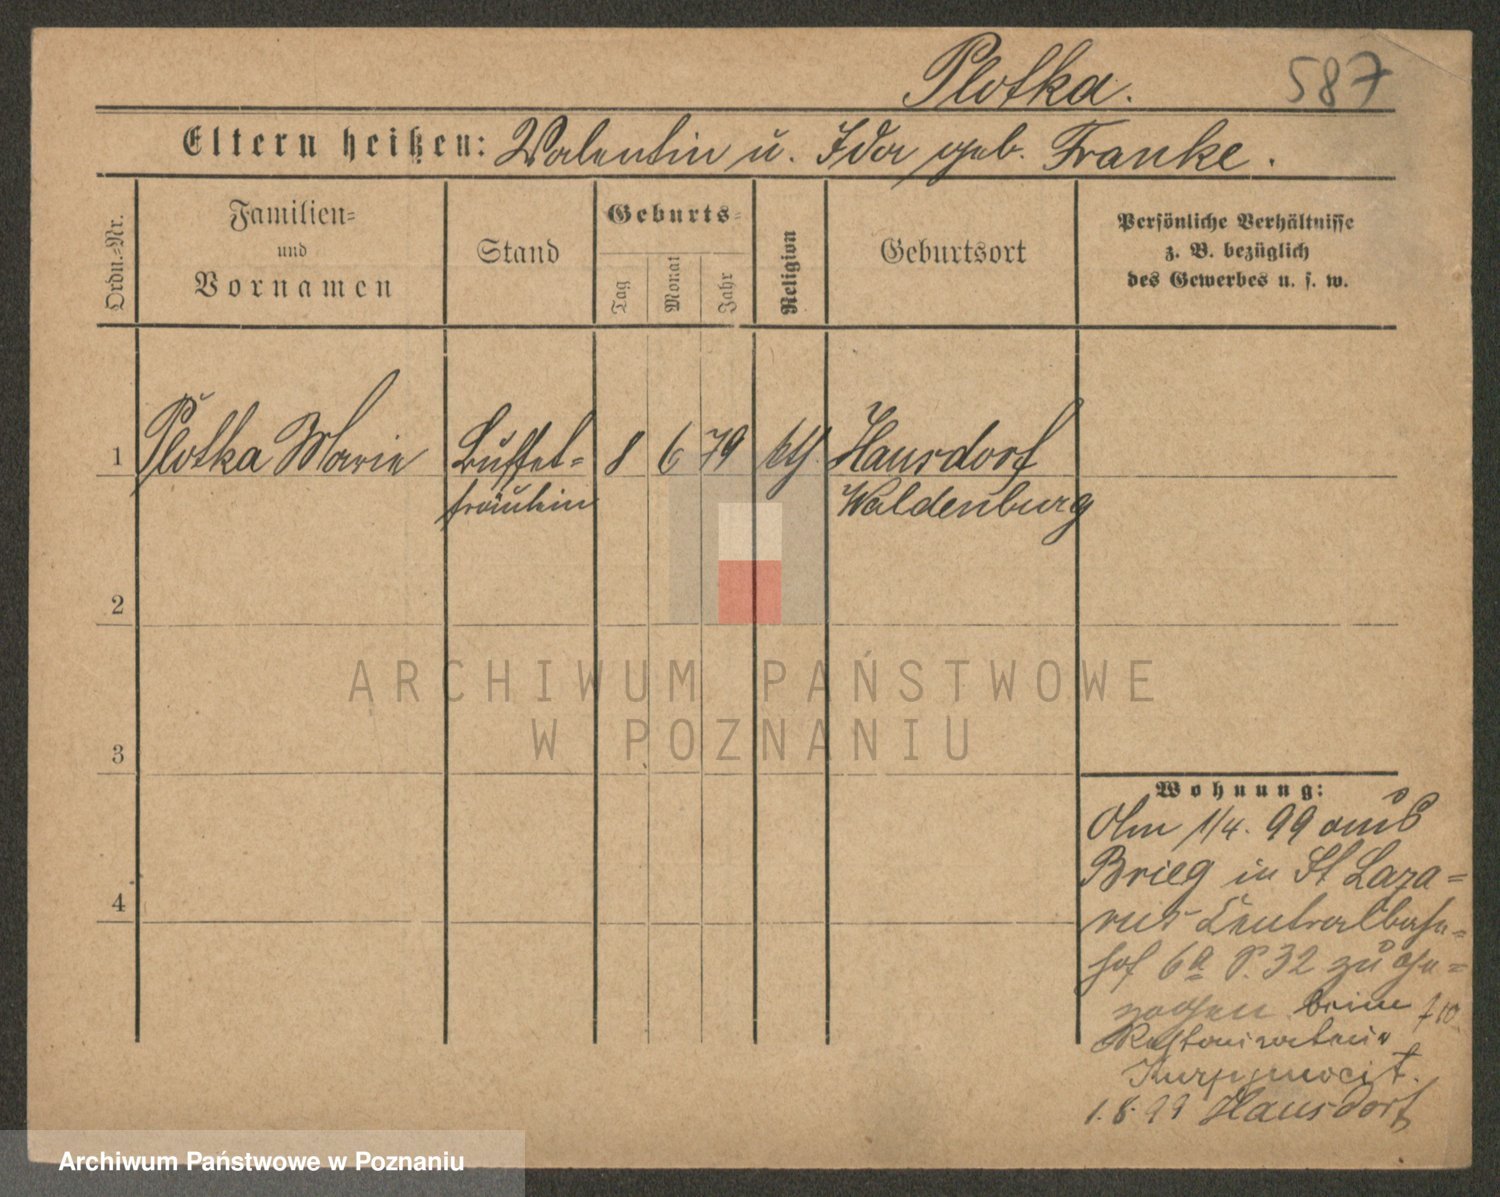 Plotka.
587
Eltern heißen: Valentin u. Ida geb. Franke.
Ordn.=Nr.
Familien=
und
Vornamen
Stand
Geburts=
Tag
Monat
Jahr
Religion
Geburtsort
Persönliche Verhältnisse
z. B. bezüglich
des Gewerbes u. s. w.
1 Plotka Marie Buffet= 8 6 79 kth. Hausdorf
fräulein Waldenburg
2
ARCHIWUM PAŃSTWOWE
W POZNANIU
3
Wohnung:
Am 1/4. 99 aus
Brieg in St Laza=
rus Centralbahn=
4
hof 6a P. 32 zuge=
zogen beim
Restaurateur
1.8.99 Hausdorf
Archiwum Państwowe w Poznaniu